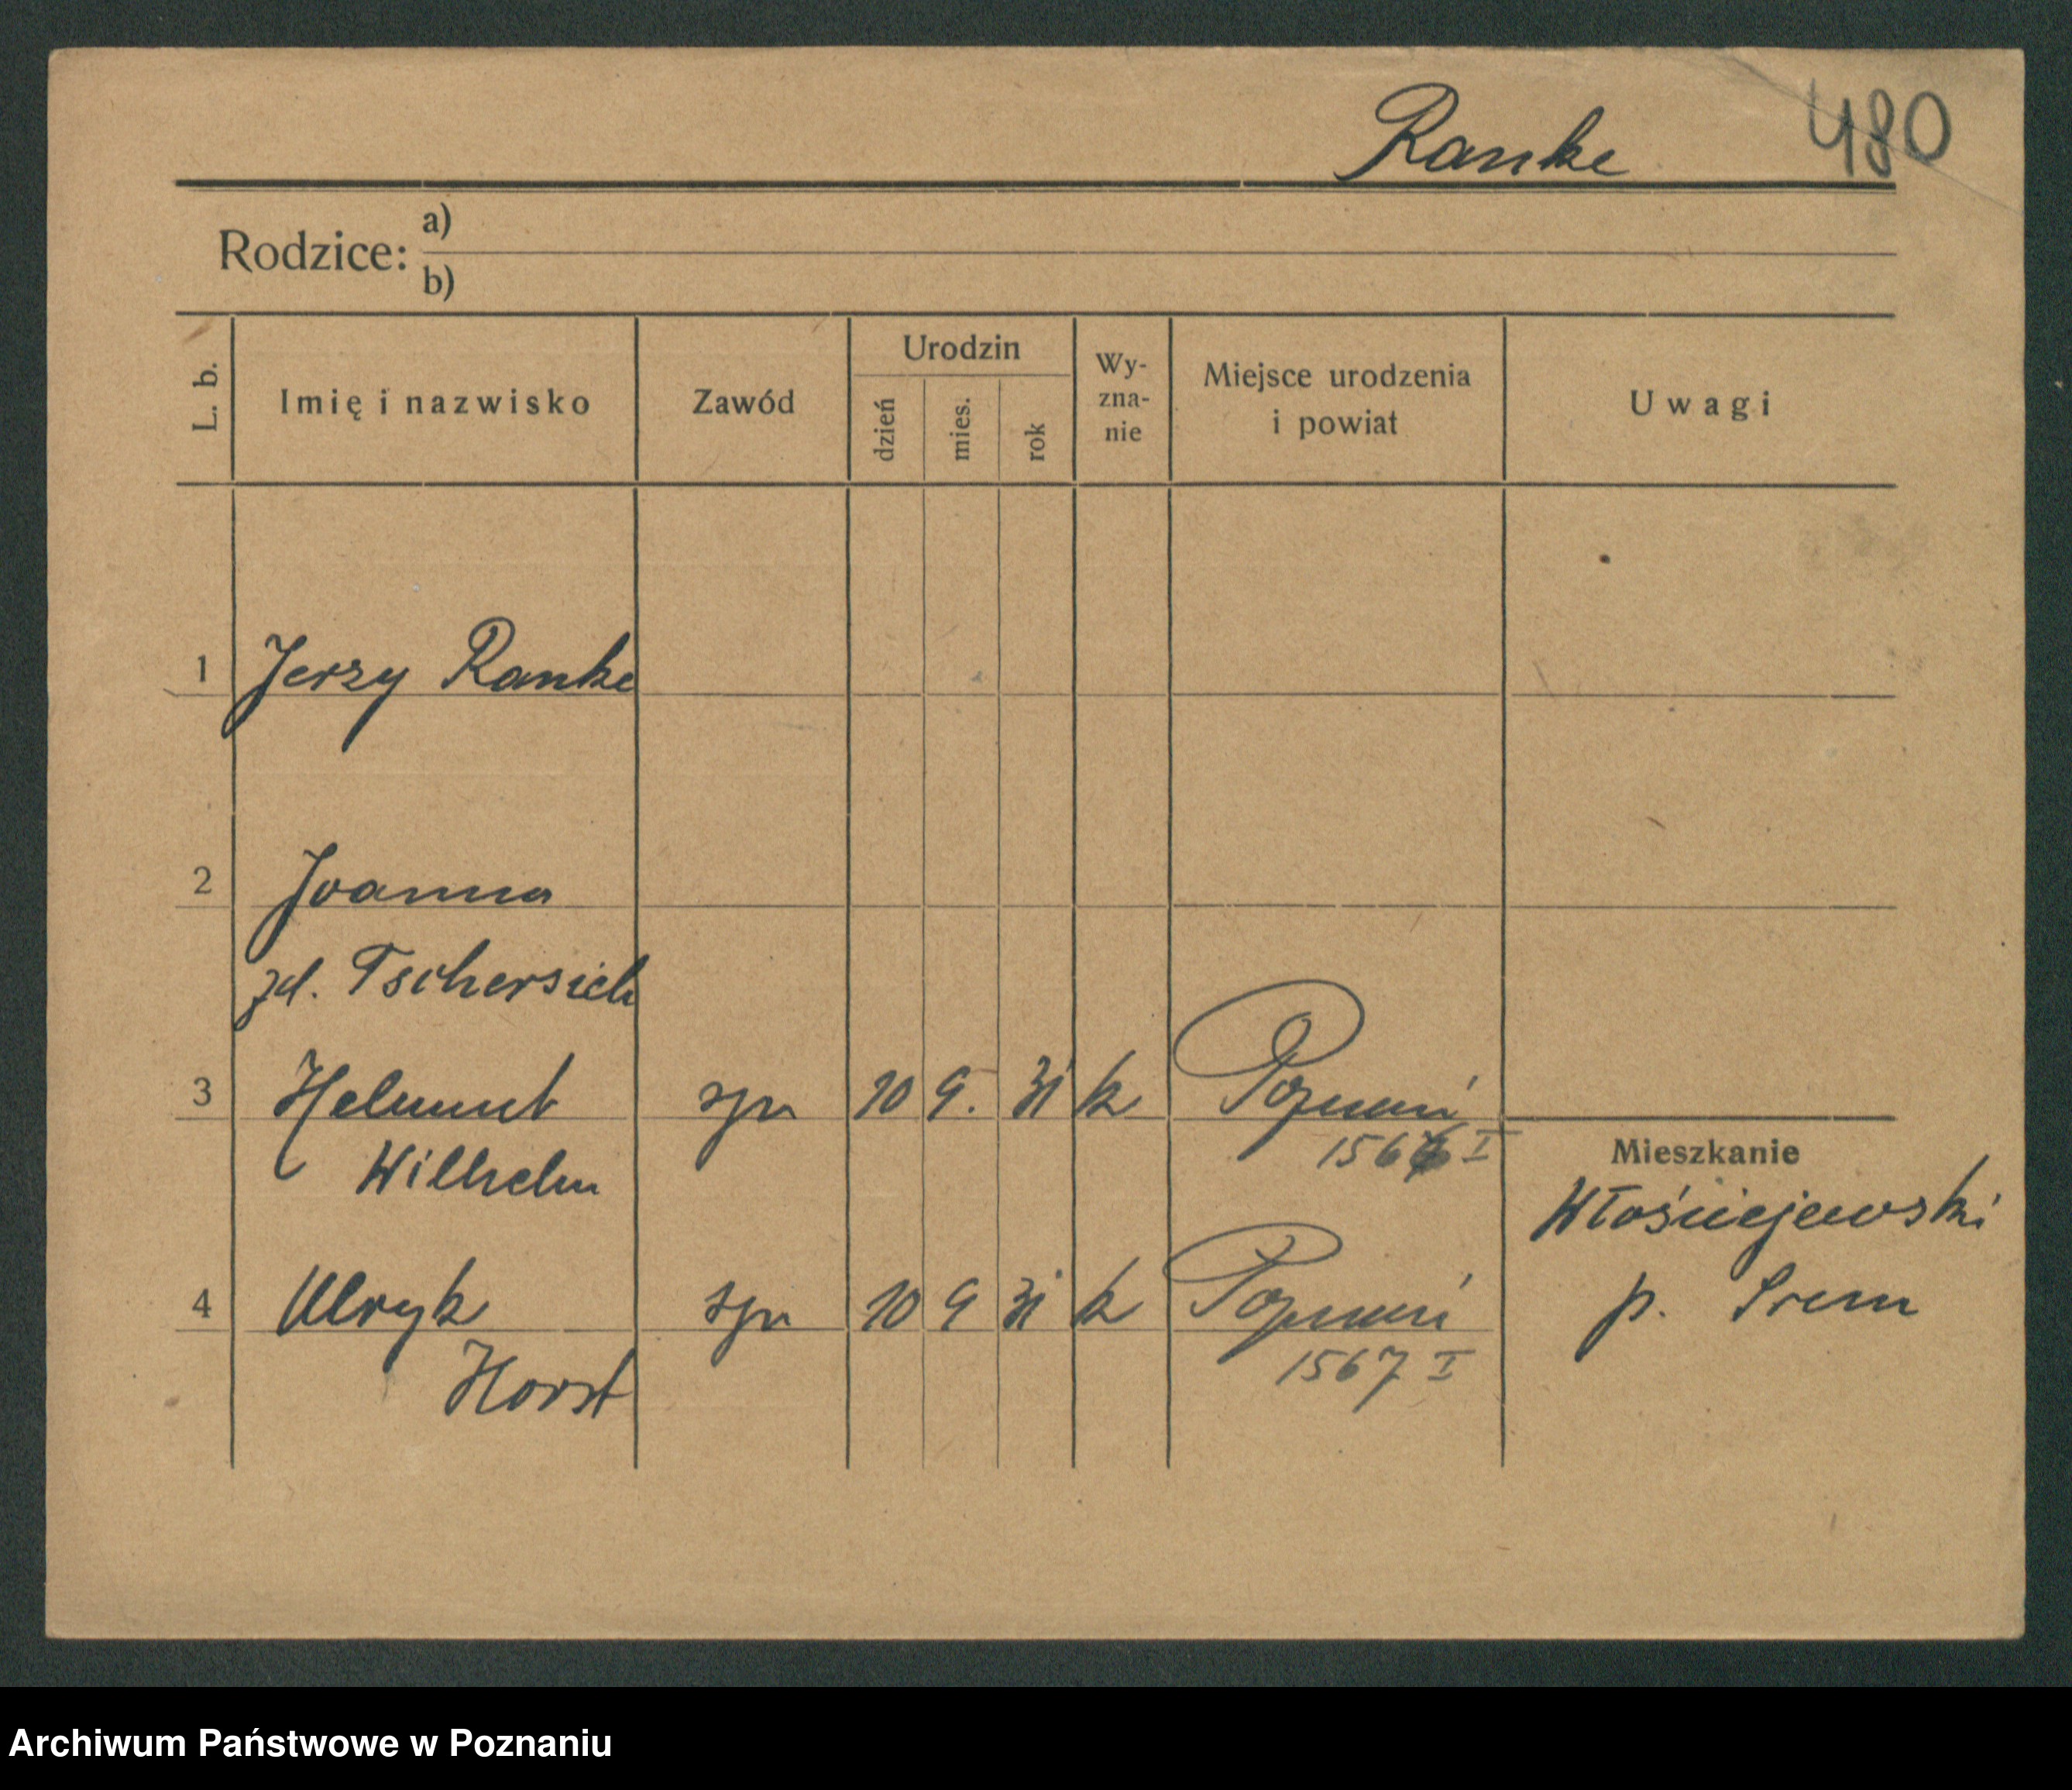 Ranke 480
Rodzice: a)
b)
L. b. Imię i nazwisko Zawód Urodzin dzień mies. rok Wy-zna-nie Miejsce urodzenia i powiat Uwagi
1 Jerzy Ranke
2 Joanna
zd. Tschersich
3 Helmut syn 10 9. 31 k Poznań
Wilhelm 1566 I
Mieszkanie
Włościejewski
4 Ulryk syn 10 9 31 k Poznań
p. Śrem
Horst 1567 I
Archiwum Państwowe w Poznaniu